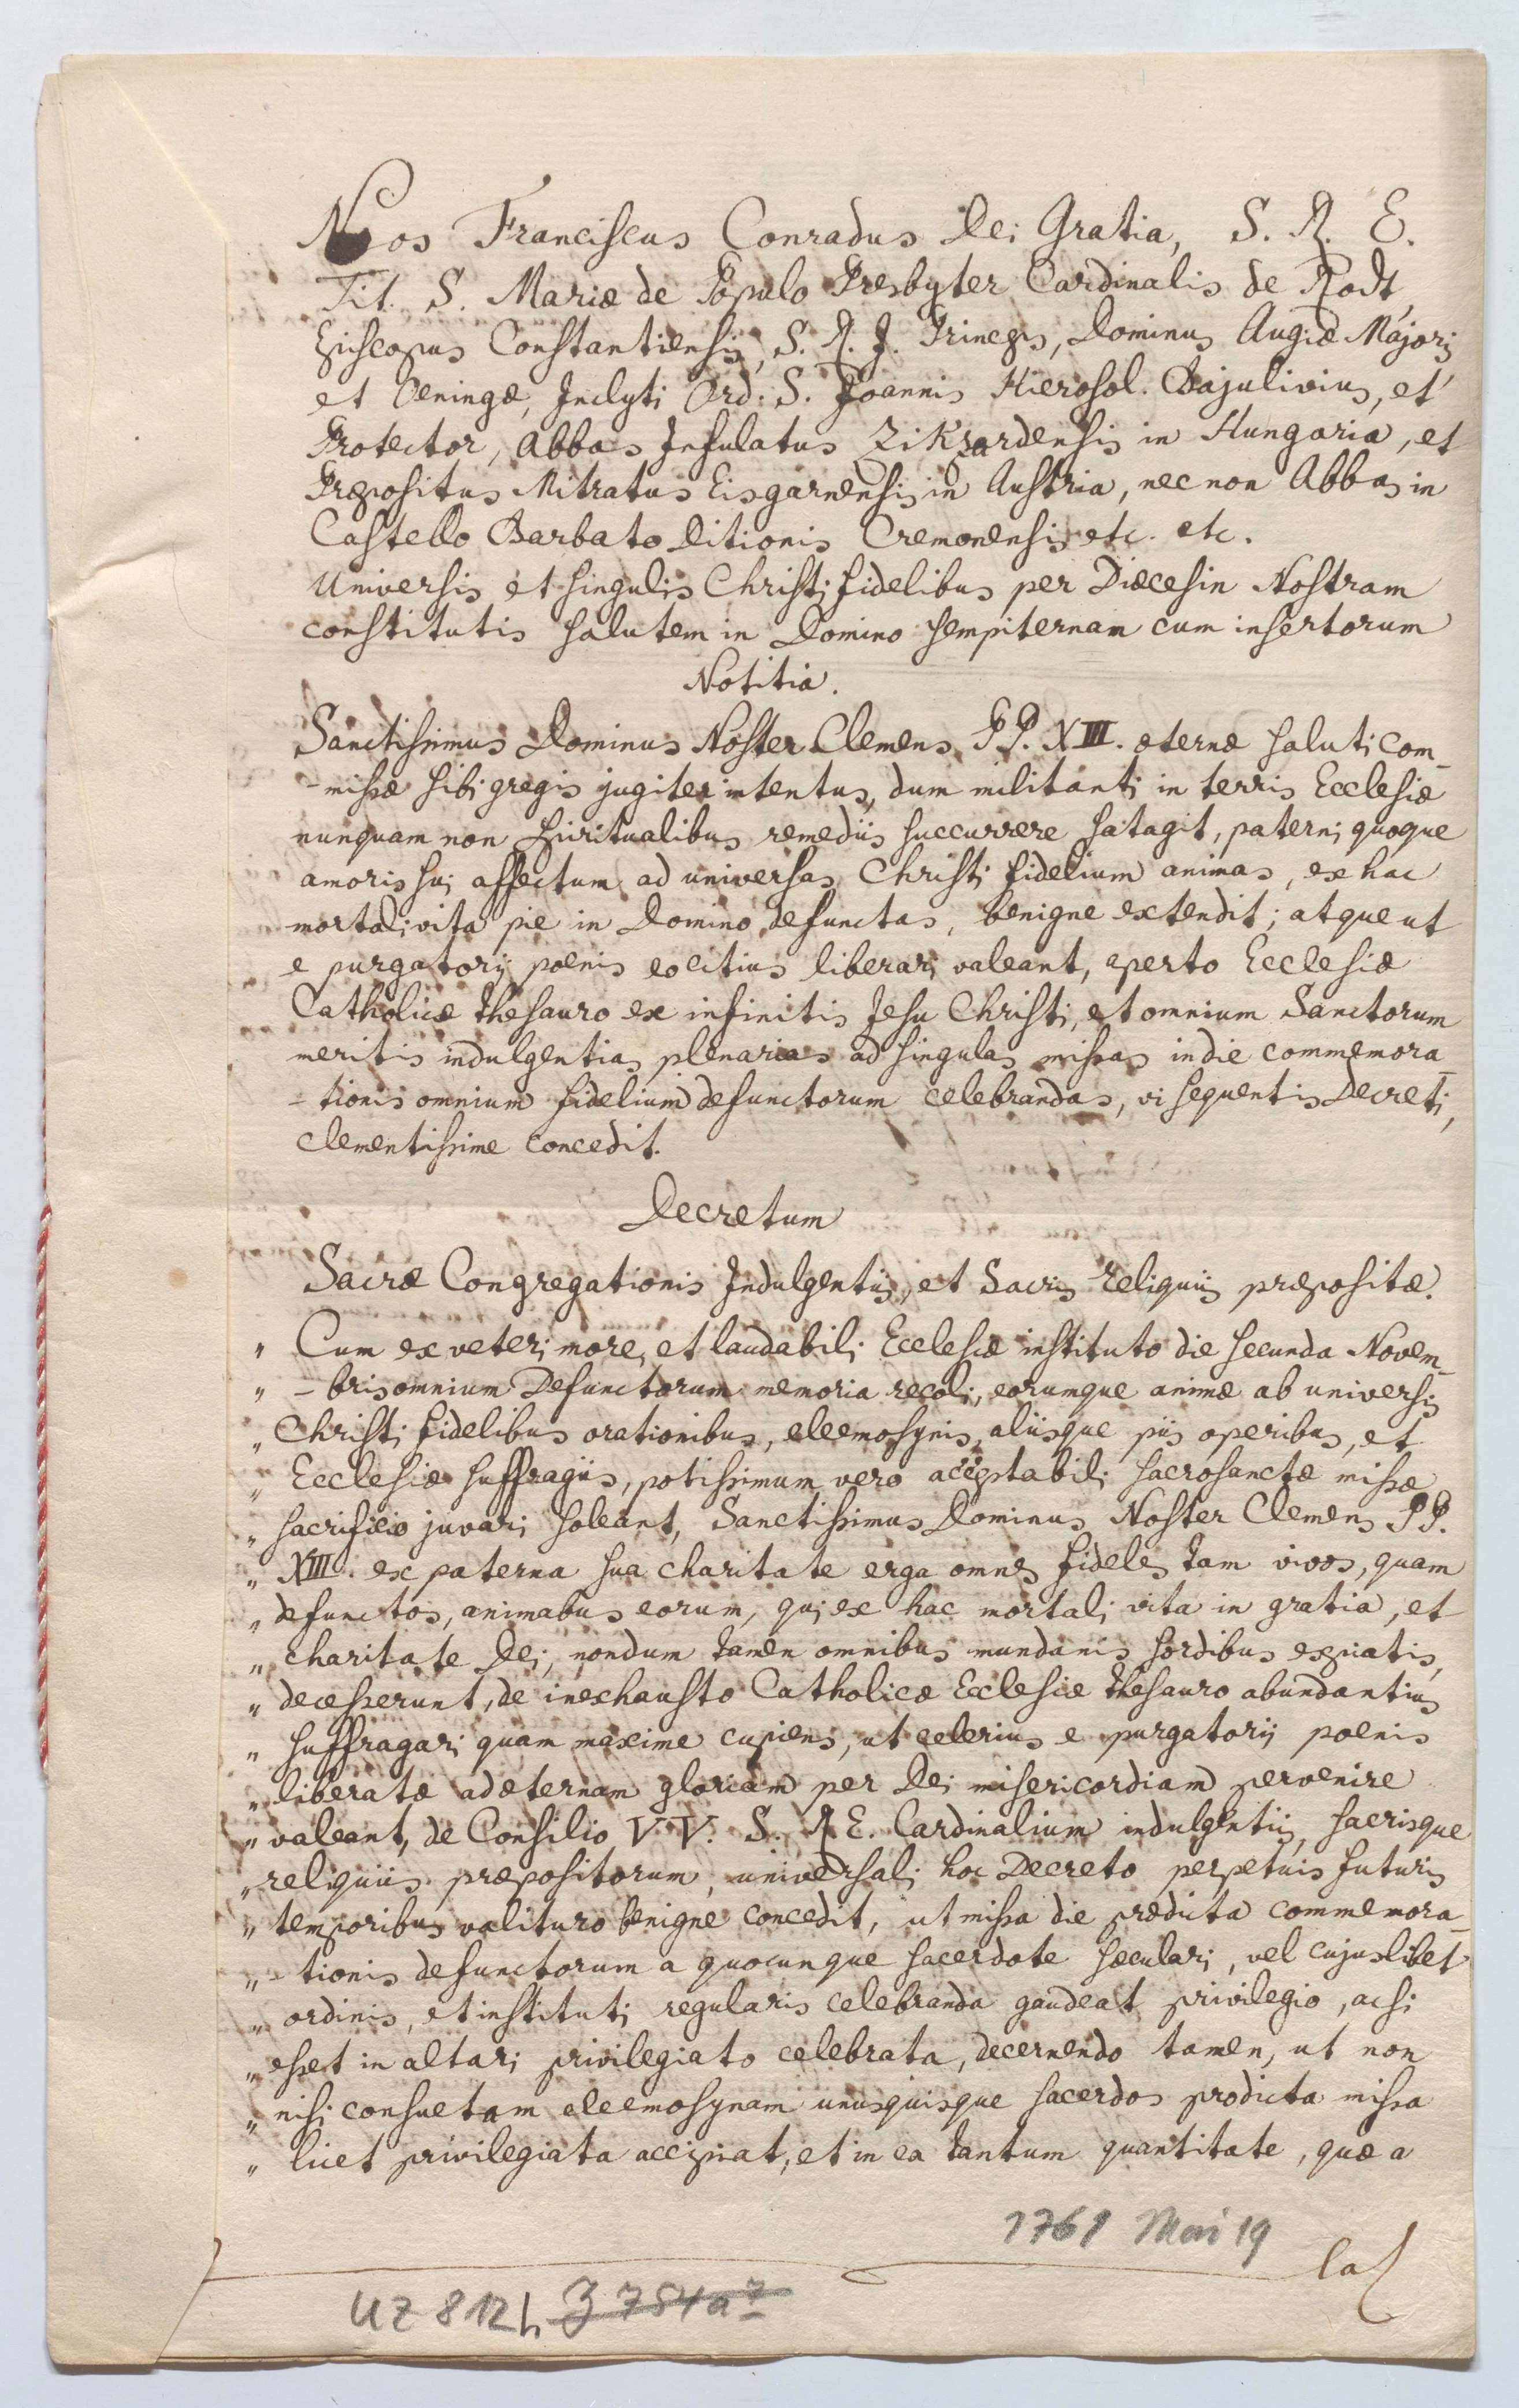 Nos Franciscus Conradus Dei Gratia, S. R. E.
Tit. S. Mariæ de Populo Presbyter Cardinalis de Rodt,
Episcopus Constantiensis, S. R. J. Princeps, Dominus Augiæ Majoris
et Oeningæ, Inclyti Ord: S. Joannis Hierosol. Bajulivius, et
Protector, Abbas Infulatus Zikzardensis in Hungaria, et
Præpositus Mitratus Eisgarnensis in Austria, nec non Abbas in
Castello Barbato Ditionis Cremonensis etc. etc.
Universis et singulis Christi fidelibus per Diœcesin Nostram
constitutis salutem in Domino sempiternam cum insertorum
Notitia.
Sanctissimus Dominus Noster Clemens PP. XIII. æternæ saluti com-
-missæ sibi gregis jugiter intentus, dum militanti in terris Ecclesiæ
nunquam non spiritualibus remediis succurrere satagit, paterni quoque
amoris sui affectum ad universas Christi fidelium animas, ex hac
mortali vita pie in Domino defunctas, benigne extendit; atque ut
e purgatorij poenis eo citius liberari valeant, aperto Ecclesiæ
Catholicæ thesauro ex infinitis Jesu Christi, et omnium Sanctorum
meritis indulgentias plenarias ad singulas missas in die commemora-
-tionis omnium fidelium defunctorum celebrandas, vi sequentis Decreti,
clementissime concedit.
Decretum
Sacræ Congregationis Indulgentiis, et Sacris reliquiis præpositæ.
„ Cum ex veteri more, et laudabili Ecclesiæ instituto die secunda Novem-
„ -bris omnium Defunctorum memoria recoli, eorumque animæ ab universis
„ Christi fidelibus orationibus, eleemosynis, aliisque piis operibus, et
„ Ecclesiæ suffragiis, potissimum vero acceptabili sacrosanctæ missæ
„ sacrificio juvari soleant, Sanctissimus Dominus Noster Clemens PP.
„ XIII. ex paterna sua charitate erga omnes fideles tam vivos, quam
„ defunctos, animabus eorum, qui ex hac mortali vita in gratia, et
„ charitate Dei, nondum tamen omnibus mundanis sordibus expiatis,
„ decesserunt, de inexhausto Catholicæ Ecclesiæ thesauro abundantius
„ suffragari quam maxime cupiens, ut celerius e purgatorij poenis
„ liberatæ ad æternam gloriam per Dei misericordiam pervenire
„ valeant, de Consilio VV. S. R. E. Cardinalium indulgentiis, sacrisque
„ reliquiis præpositorum, universali hoc Decreto perpetuis futuris
„ temporibus valituro benigne concedit, ut missa die prædicta commemora-
„ -tionis defunctorum a quocunque sacerdote sæculari, vel cujuslibet
„ ordinis, et instituti regularis celebranda gaudeat privilegio, ac si
„ esset in altari privilegiato celebrata, decernendo tamen, ut non
„ nisi consuetam eleemosynam unusquisque sacerdos prædicta missa
„ licet privilegiata accipiat, et in ea tantum quantitate, quæ a
1761 Mai 19
la
UZ 812h Z 784a7